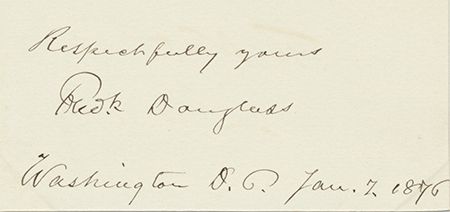 Respectfully yours
Fredk Douglass
Washington D.C. Jan. 7. 1876